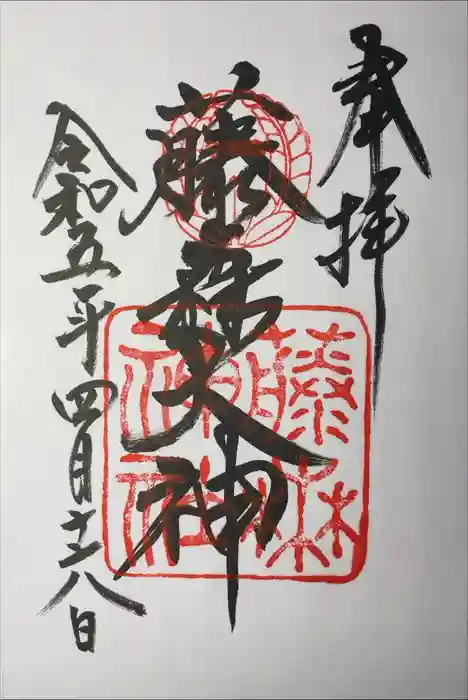 奉拝
藤森大神
藤森
神社
令和五年四月十六日